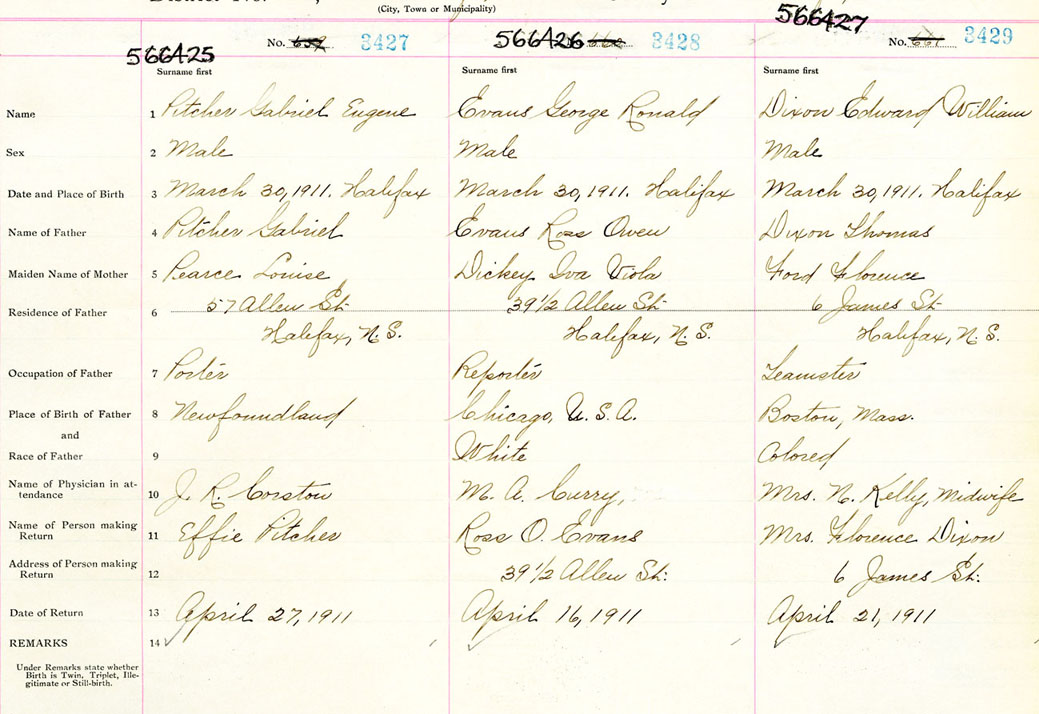 (City, Town or Municipality)
566425 No. 3427 566426 3428 566427 No. 3429
Surname first Surname first Surname first
Name 1 Pitcher Gabriel Eugene Evans George Ronald Dixon Edward William
Sex 2 Male Male Male
Date and Place of Birth 3 March 30, 1911. Halifax March 30, 1911. Halifax March 30, 1911. Halifax
Name of Father 4 Pitcher Gabriel Evans Ross Owen Dixon Thomas
Maiden Name of Mother 5 Pearce Louise Dickey Iva Viola Ford Florence
Residence of Father 6 57 Allen St. 39 1/2 Allen St. 6 James St
Halifax, N.S. Halifax, N.S. Halifax, N.S.
Occupation of Father 7 Porter Reporter Teamster
Place of Birth of Father 8 Newfoundland Chicago, U.S.A. Boston, Mass.
and
Race of Father 9 White Colored
Name of Physician in at-
tendance 10 J. R. Corston M. A. Curry, Mrs. N. Kelly, Midwife
Name of Person making
Return 11 Effie Pitcher Ross O. Evans Mrs. Florence Dixon
Address of Person making
Return 12 39 1/2 Allen St: 6 James St:
Date of Return 13 April 27, 1911 April 16, 1911 April 21, 1911
REMARKS 14
Under Remarks state whether
Birth is Twin, Triplet, Ille-
gitimate or Still-birth.